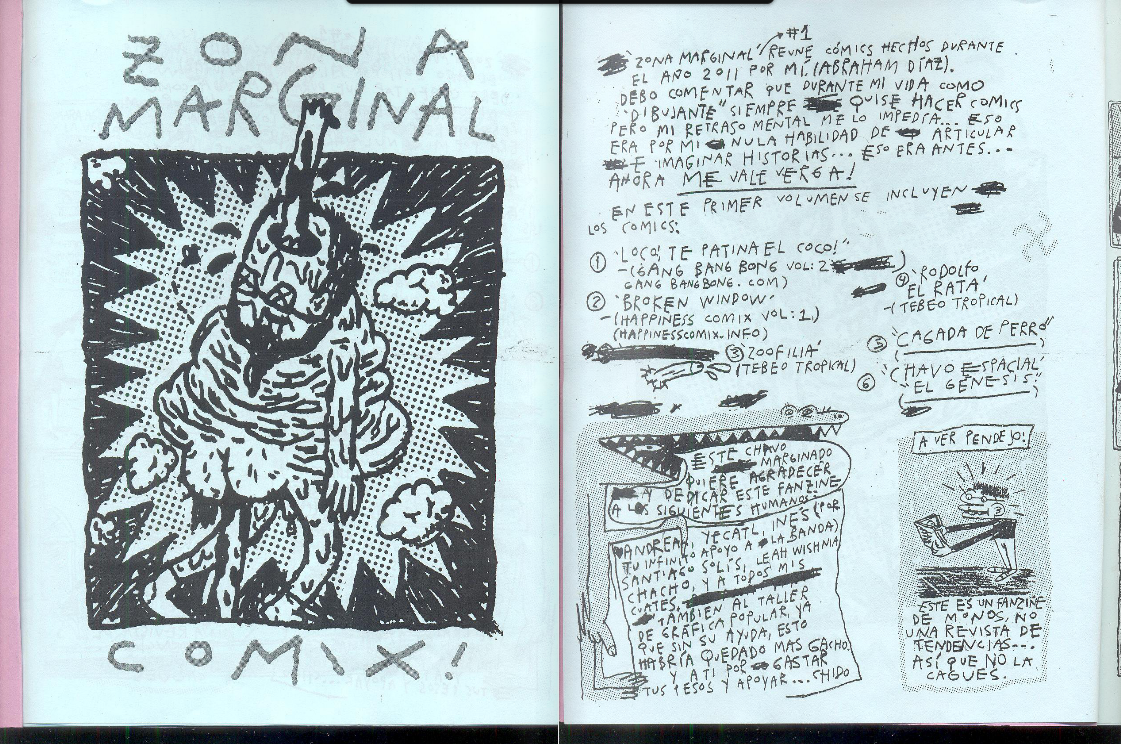 ZONA
MARGINAL
COMIX!
#1
"ZONA MARGINAL" REUNE CÓMICS HECHOS DURANTE
EL AÑO 2011 POR MÍ. (ABRAHAM DÍAZ).
DEBO COMENTAR QUE DURANTE MI VIDA COMO
"DIBUJANTE" SIEMPRE QUISE HACER COMICS
PERO MI RETRASO MENTAL ME LO IMPEDÍA... ESO
ERA POR MI NULA HABILIDAD DE ARTICULAR
E IMAGINAR HISTORIAS... ESO ERA ANTES...
AHORA ME VALE VERGA!
EN ESTE PRIMER VOLUMEN SE INCLUYEN
LOS COMICS:
① "LOCO! TE PATINA EL COCO!"
-(GANG BANG BONG VOL: 2
GANG BANGBONG. COM)
② "BROKEN WINDOW"
-(HAPPINESS COMIX VOL: 1,)
(HAPPINESSCOMIX.INFO)
③ ZOOFILIA'
(TEBEO TROPICAL)
④ 'RODOLFO
EL RATA'
-(TEBEO TROPICAL)
⑤ "CAGADA DE PERRO"
⑥ "CHAVO ESPACIAL"
"EL GÉNESIS"
ESTE CHAVO
MARGINADO
QUIERE AGRADECER
Y DEDICAR ESTE FANZINE
A LOS SIGUIENTES HUMANOS
ANDREA, YECATL, INES (POR
TU INFINITO APOYO A LA BANDA)
SANTIAGO SOLÍS, LEAH WISHNIA,
CHACHO, Y A TODOS MIS
CUATES.
TAMBIEN AL TALLER
DE GRÁFICA POPULAR, YA
QUE SIN SU AYUDA, ESTO
HABRÍA QUEDADO MAS GACHO.
Y A TI POR GASTAR
TUS PESOS Y APOYAR... CHIDO
A VER PENDEJO!
ESTE ES UN FANZINE
DE MONOS, NO
UNA REVISTA DE
TENDENCIAS...
ASÍ QUE NO LA
CAGUES.